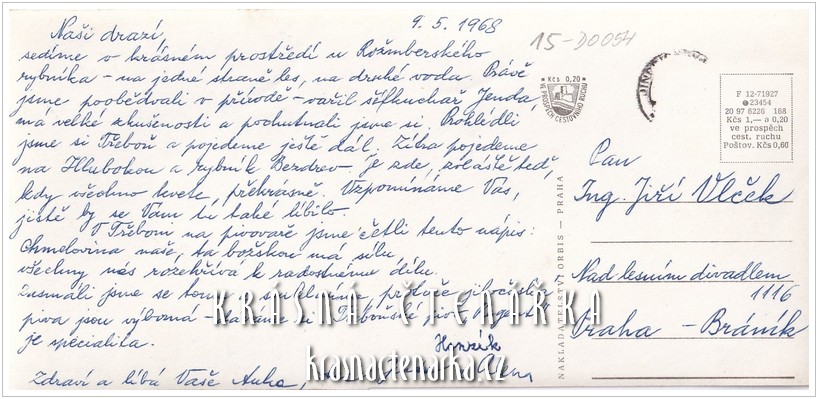 9. 5. 1968
15-D0054
Naši drazí,
sedíme v krásném prostředí u Rožmberského
rybníka – na jedné straně les, na druhé voda. Právě
jsme poobědvali v přírodě – vařil šéfkuchař Jenda,
má velké zkušenosti a pochutnali jsme si. Prohlédli
jsme si Třeboň a pojedeme ještě dál. Zítra pojedeme
na Hlubokou a rybník Bezdrev. Je zde, zvláště teď,
kdy všechno kvete, překrásně. Vzpomínáme Vás,
jistě by se Vám tu také líbilo.
V Třeboni na pivovaře jsme četli tento nápis:
Chmelovina naše, ta božskou má sílu,
všechny nás rozehřívá k radostnému dílu.
Zasmáli jsme se tomu
piva jsou výborná – Třeboňské pivo
je specialita.
Zdraví a líbá Vaše
Alena
Kčs 0,20
VE PROSPĚCH CESTOVNÍHO RUCHU
F 12-71927
23454
20 97 6226 168
Kčs 1,— a 0,20
ve prospěch
cest. ruchu
Poštov. Kčs 0,60
NAKLADATELSTVÍ ORBIS — PRAHA
Pan
Ing. Jiří Vlček
Nad lesním divadlem
1116
Praha – Bráník
KRÁSNÁ ČTENÁŘKA
krasnactenarka.cz